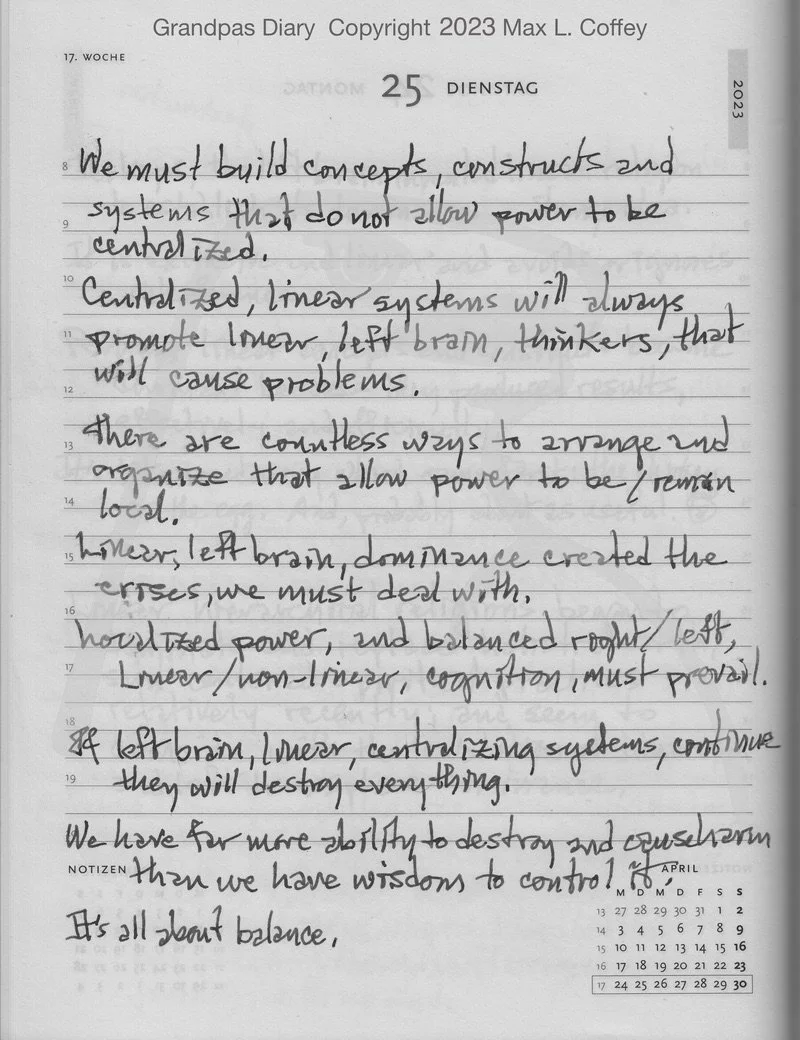 Grandpas Diary Copyright 2023 Max L. Coffey
17. WOCHE
25 DIENSTAG
2023
8 We must build concepts, constructs and
systems that do not allow power to be
9
centralized.
10
Centralized, linear systems will always
11 promote linear, left brain, thinkers, that
will cause problems.
12
13 there are countless ways to arrange and
organize that allow power to be/remain
14 local.
15 Linear, left brain, dominance created the
crises, we must deal with.
16
Localized power, and balanced right/left,
17 Linear/non-linear, cognition, must prevail.
18
If left brain, linear, centralizing systems, continue
19 they will destroy everything.
We have far more ability to destroy and cause harm
NOTIZEN than we have wisdom to control it.
It's all about balance.
APRIL
M D M D F S S
13 27 28 29 30 31 1 2
14 3 4 5 6 7 8 9
15 10 11 12 13 14 15 16
16 17 18 19 20 21 22 23
17 24 25 26 27 28 29 30